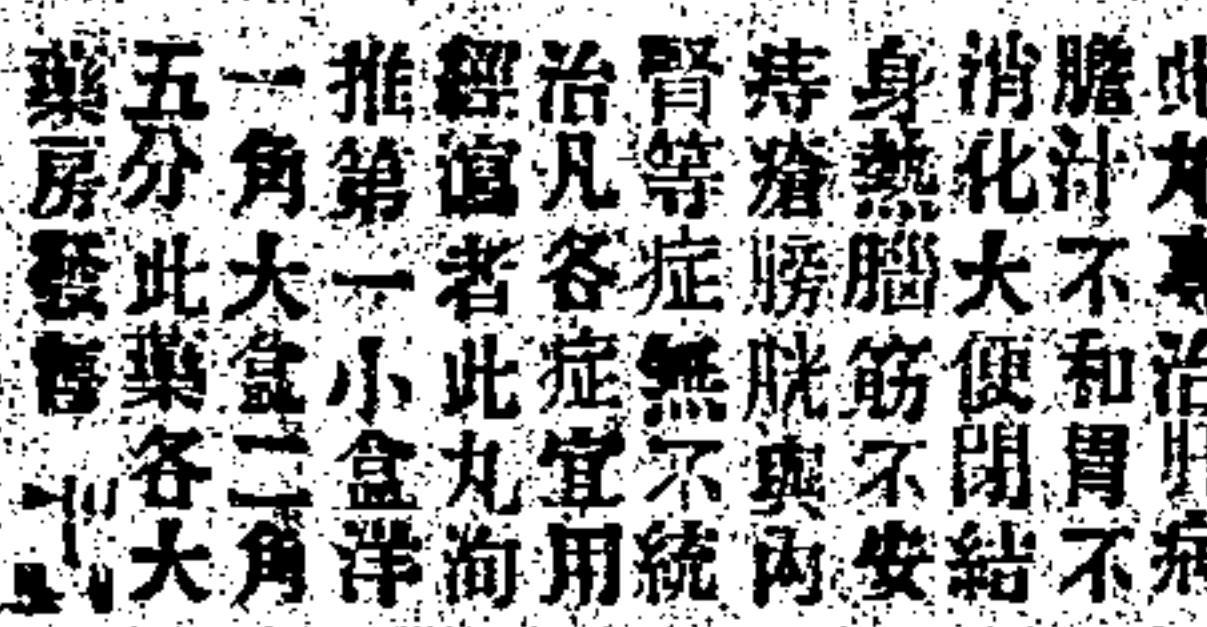 此丸專治肝病
膽汁不和胃不
消化大便閉結
身熱腦筋不安
痔瘡膀胱與內
腎等症無不統
治凡各症宜用
經瀉者此丸洵
推第一小盒洋
一角大盒二角
五分此藥各大
藥房發售